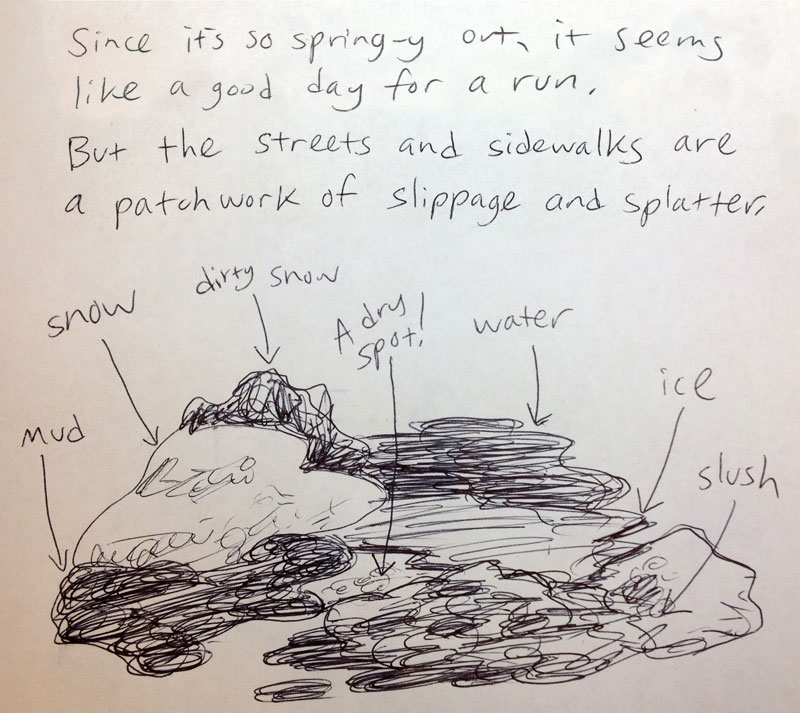 Since it's so spring-y out, it seems
like a good day for a run.
But the streets and sidewalks are
a patchwork of slippage and splatter,
dirty snow
snow
A dry
spot!
water
ice
mud
slush